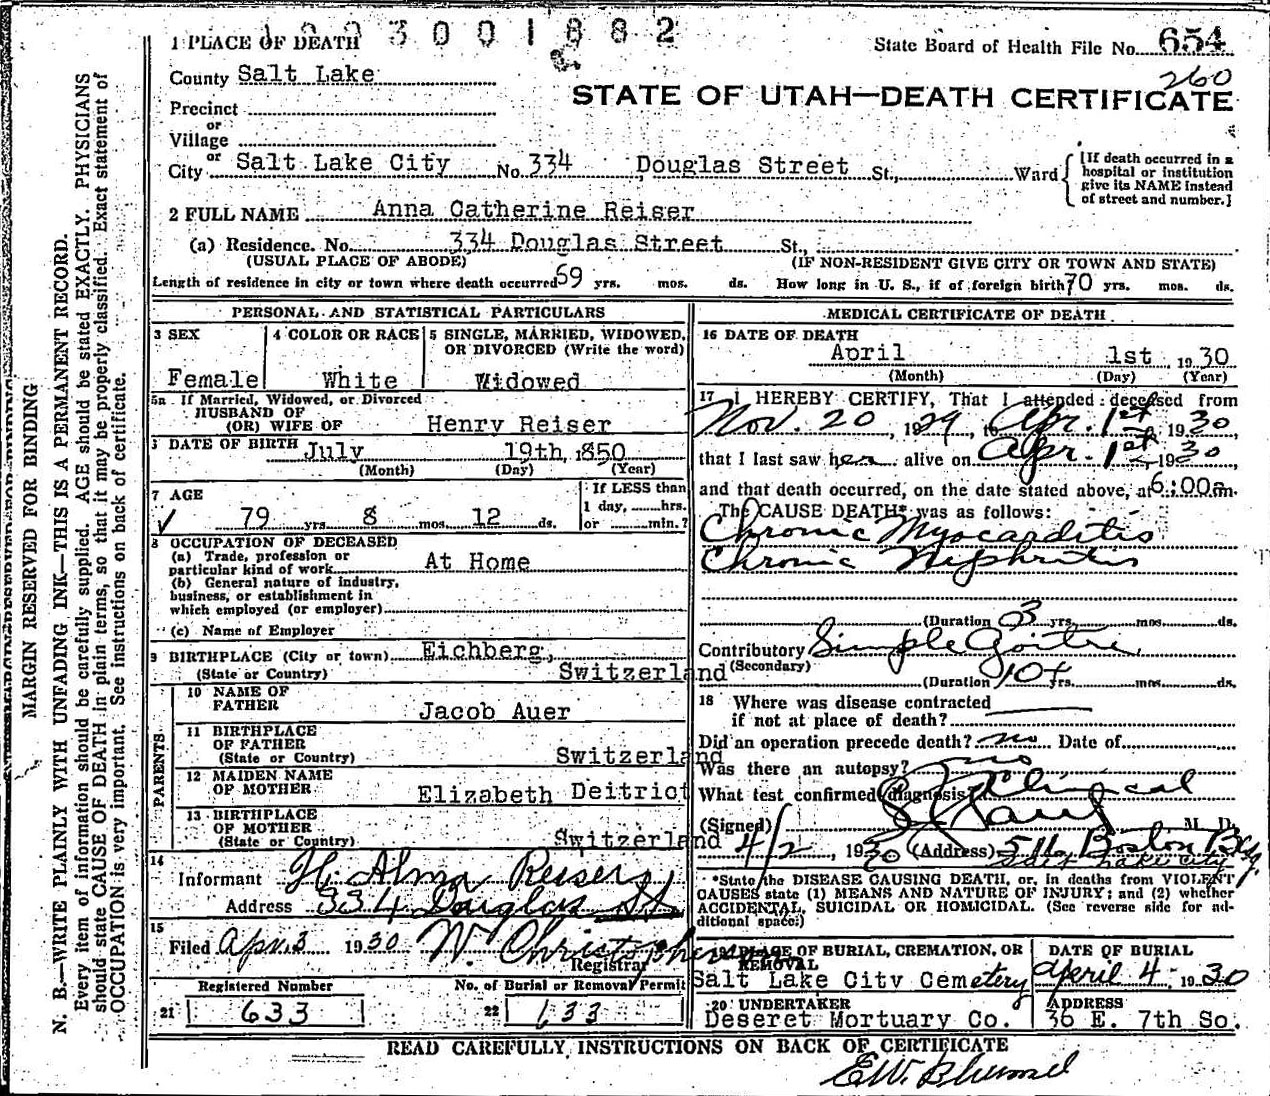 1003001882
1 PLACE OF DEATH
State Board of Health File No. 654
260
County Salt Lake
STATE OF UTAH—DEATH CERTIFICATE
Precinct
or
Village
or
City Salt Lake City No. 334 Douglas Street St., Ward
[If death occurred in a hospital or institution give its NAME instead of street and number.]
2 FULL NAME Anna Catherine Reiser
(a) Residence. No. 334 Douglas Street St.,
(USUAL PLACE OF ABODE) (IF NON-RESIDENT GIVE CITY OR TOWN AND STATE)
Length of residence in city or town where death occurred 59 yrs. mos. ds. How long in U. S., if of foreign birth 70 yrs. mos. ds.
PERSONAL AND STATISTICAL PARTICULARS
3 SEX
Female
4 COLOR OR RACE
White
5 SINGLE, MARRIED, WIDOWED,
OR DIVORCED (Write the word)
Widowed
5a If Married, Widowed, or Divorced
HUSBAND OF
(OR) WIFE OF Henry Reiser
DATE OF BIRTH July 19th, 1850
(Month) (Day) (Year)
7 AGE
79 yrs 8 mos. 12 ds.
If LESS than
1 day, ......hrs.
or ......min.?
8 OCCUPATION OF DECEASED
(a) Trade, profession or
particular kind of work At Home
(b) General nature of industry,
business, or establishment in
which employed (or employer)
(c) Name of Employer
9 BIRTHPLACE (City or town) Eichberg,
(State or Country) Switzerland
PARENTS
10 NAME OF
FATHER Jacob Auer
11 BIRTHPLACE
OF FATHER
(State or Country) Switzerland
12 MAIDEN NAME
OF MOTHER Elizabeth Deitrict
13 BIRTHPLACE
OF MOTHER
(State or Country) Switzerland
14
Informant H. Alma Reiser
Address 334 Douglas St
15
Filed Apr. 3 1930 W. Christopherson
Registrar
Registered Number
21 633
No. of Burial or Removal Permit
22 633
MEDICAL CERTIFICATE OF DEATH
16 DATE OF DEATH
April 1st, 1930
(Month) (Day) (Year)
17 I HEREBY CERTIFY, That I attended deceased from
Nov. 20, 1929, to Apr. 1st, 1930,
that I last saw her alive on Apr. 1st, 1930
and that death occurred, on the date stated above, at 6:00a.m.
The CAUSE DEATH* was as follows:
Chronic Myocarditis
Chronic Nephritis
(Duration) 3 yrs. mos. ds.
Contributory Simple Goitre
(Secondary)
(Duration) 10+ yrs. mos ds.
18 Where was disease contracted
if not at place of death?
Did an operation precede death? no Date of
Was there an autopsy? no
What test confirmed diagnosis? Clinical
(Signed) M. D.
4/2, 1930 (Address) 511 Boston Bldg.
Salt Lake City
*State the DISEASE CAUSING DEATH, or, in deaths from VIOLENT
CAUSES state (1) MEANS AND NATURE OF INJURY; and (2) whether
ACCIDENTAL, SUICIDAL OR HOMICIDAL. (See reverse side for ad-
ditional space.)
19 PLACE OF BURIAL, CREMATION, OR
REMOVAL
Salt Lake City Cemetery
DATE OF BURIAL
April 4, 1930
20 UNDERTAKER
Deseret Mortuary Co.
ADDRESS
36 E. 7th So.
READ CAREFULLY INSTRUCTIONS ON BACK OF CERTIFICATE
MARGIN RESERVED FOR BINDING
N. B.—WRITE PLAINLY WITH UNFADING INK—THIS IS A PERMANENT RECORD.
Every item of information should be carefully supplied. AGE should be stated EXACTLY. PHYSICIANS
should state CAUSE OF DEATH in plain terms, so that it may be properly classified. Exact statement of
OCCUPATION is very important. See instructions on back of certificate.